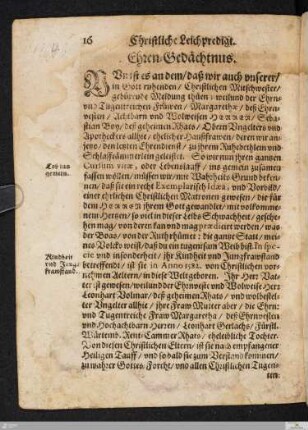 16 Christliche Leichpredigt.
Ehren-Gedächtnus.
NUn ist es an dem/ daß wir auch unserer/
in Gott ruhenden/ Christlichen Mitschwester/
gebürende Meldung thüen/ weilund der Ehren-
und Tugentreichen Frawen/ Margaretha/ deß Ehren-
vesten/ Achtbarn und Wolweisen Herren/ Seba-
stian Boy/ deß geheimen Rhats/ Obern Ungelters und
Apotheckers allhie/ ehelicher Haußfrawen/ deren wir an-
jetzo/ den letzten Ehrendienst/ zu jhrem Ruhebethlein und
Schlaffkämmerlein geleistet. So wir nun jhren gantzen
Cursum vitæ, oder Lebenslauff/ ins gemein zusamen
fassen wöllen/ müssen wir/ mit Warheits Grund beken-
nen/ daß sie ein recht Exemplarisch Idæa, und Vorbild/
einer ehrlichen Christlichen Matronen gewesen/ die für
dem HERREN jhrem Gott gewandelt/ mit vollkomme-
nem Hertzen/ so viel in dieser Leibs Schwachheit/ gesche-
hen mag/ von deren kan und mag prædiciert werden/ was
der Boas/ von der Ruth rühmet: die gantze Statt/ mei-
nes Volcks weist/ daß du ein tugentsam Weib bist. In spe-
cie und in sonderheit/ jhr Kindheit und Jungfrawstand
betreffendt/ ist sie in Anno 1582. von Christlichen vor-
nehmen Aeltern/ in diese Welt geboren. Jhr Herr Vatter
ist gewesen/ weilund der Ehrnveste und Wolweise Herr
Leonhart Volmar/ deß geheimen Rhats/ und wolbestel-
ter Ungelter allhie/ jhre Fraw Mutter aber/ die Ehren-
und Tugentreiche Fraw Margaretha/ deß Ehrnvesten
und Hochachtbarn Herren/ Leonhart Gerlachs/ Fürstl.
Würtemb. Rent-Cammer Rhats/ eheleibliche Tochter.
Von diesen Christlichen Eltern/ ist sie nach empfangener
Heiligen Tauff/ und so bald sie zum Verstand kommen/
zu wahrer Gottes-Forcht/ und allen Christlichen Tugen-
ten:
Lob ins
gemein.
Kindheit
und Jung-
frawstand.